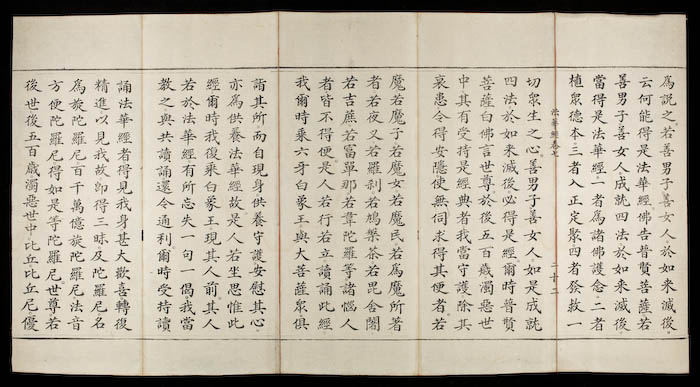 爲説之若善男子善女人於如來滅後
云何能得是法華經佛告普賢菩薩若
善男子善女人成就四法於如來滅後
當得是法華經一者爲諸佛護念二者
植衆德本三者入正定聚四者發救一
法華經卷七 二十二
切衆生之心善男子善女人如是成就
四法於如來滅後必得是經爾時普賢
菩薩白佛言世尊於後五百歲濁惡世
中其有受持是經典者我當守護除其
衰患令得安隱使無伺求得其便者若
魔若魔子若魔女若魔民若爲魔所著
者若夜叉若羅刹若鳩槃荼若毘舍闍
若吉蔗若富單那若韋陀羅等諸惱人
者皆不得便是人若行若立讀誦此經
我爾時乘六牙白象王與大菩薩衆俱
詣其所而自現身供養守護安慰其心
亦爲供養法華經故是人若坐思惟此
經爾時我復乘白象王現其人前其人
若於法華經有所忘失一句一偈我當
教之與共讀誦還令通利爾時受持讀
誦法華經者得見我身甚大歡喜轉復
精進以見我故卽得三昧及陀羅尼名
爲旋陀羅尼百千萬億旋陀羅尼法音
方便陀羅尼得如是等陀羅尼世尊若
後世後五百歲濁惡世中比丘比丘尼優